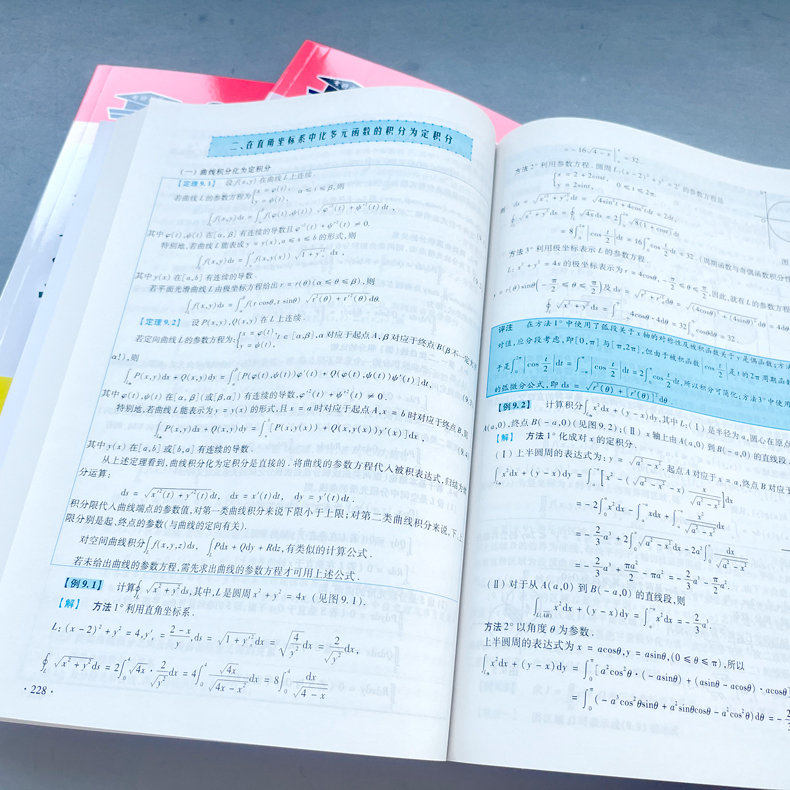 二、在直角坐标系中化多元函数的积分为定积分
(一) 曲线积分化为定积分
【定理9.1】 设f(x,y)在曲线L上连续.
若曲线L的参数方程为{x=φ(t), y=ψ(t), α≤t≤β,则
∫_L f(x,y)ds=∫_α^β f(φ(t),ψ(t))√(φ'²(t)+ψ'²(t))dt,
其中φ(t),ψ(t)在[α,β]有连续的导数且φ'²(t)+ψ'²(t)≠0.
特别地,若曲线L能表成y=y(x),a≤x≤b的形式,则
∫_L f(x,y)ds=∫_a^b f(x,y(x))√(1+y'²_x)dx,
其中y(x)在[a,b]有连续的导数.
若平面光滑曲线L由极坐标方程给出r=r(θ)(α≤θ≤β),则
∫_L f(x,y)ds=∫_α^β f(rcosθ,rsinθ)√(r²(θ)+r'²(θ))dθ.
【定理9.2】 设P(x,y),Q(x,y)在L上连续.
若定向曲线L的参数方程为:{x=φ(t), y=ψ(t), t∈[α,β],α对应于起点A,β对应于终点B(β不一定大于
α!),则
∫_L P(x,y)dx+Q(x,y)dy=∫_α^β[P(φ(t),ψ(t))φ'(t)+Q(φ(t),ψ(t))ψ'(t)]dt,
其中φ(t),ψ(t)在[α,β](或[β,α])有连续的导数,φ'²(t)+ψ'²(t)≠0.
特别地,若曲线L能表示为y=y(x)的形式,且x=a时对应于起点A,x=b时对应于终点B,则
∫_L P(x,y)dx+Q(x,y)dy=∫_a^b[P(x,y(x))+Q(x,y(x))y'(x)]dx,
其中y(x)在[a,b]或[b,a]有连续的导数.
从上述定理看到,曲线积分化为定积分是直接的.将曲线的参数方程代入被积表达式,归结为微
分运算:
ds=√(x'²(t)+y'²(t))dt, dx=x'(t)dt, dy=y'(t)dt.
积分限代入曲线端点的参数值,对第一类曲线积分来说下限小于上限;对第二类曲线积分来说,下、上
限分别是起、终点的参数(与曲线的定向有关).
对空间曲线积分∫_L f(x,y,z)ds, ∫_L Pdx+Qdy+Rdz,有类似的计算公式.
若未给出曲线的参数方程,需先求出曲线的参数方程才可用上述公式.
【例9.1】 计算∮_L √(x²+y²)ds,其中,L是圆周x²+y²=4x (见图9.1).
【解】 方法1° 利用直角坐标系.
L:(x-2)²+y²=4,y'_x=(2-x)/y,ds=√(1+y'²_x)dx=√(4/y²)dx=2/√(y²)dx,
∮_L √(x²+y²)ds=2∫_0^4 √(4x)·2/√(y²)dx=4∫_0^4 √(4x)/√(4x-x²)dx=8∫_0^4 dx/√(4-x)
·228·
=-16√(4-x)|_0^4=32.
方法2° 利用参数方程.圆周L:(x-2)²+y²=2²的参数方程是
{x=2+2cost, y=2sint, 0≤t≤2π.
则 ds=√(x'²_t+y'²_t)dt=√(4sin²t+4cos²t)dt=2dt,
∮_L √(x²+y²)ds=∮_L √(4x)ds=2∫_0^{2π}√(8(1+cost))dt
=8∫_0^{2π}|cos t/2|dt=16∫_0^π cos t/2 dt=32.(周期函数与奇偶函数积分性
方法3° 利用极坐标表示L的参数方程.
L:x²+y²=4x的极坐标表示为r=4cosθ,-π/2≤θ≤π/2.因此,就有L的参数方程
y=r(θ)sinθ(-π/2≤θ≤π/2)及ds=√(r²+r'²_θ)dθ=√((4cosθ)²+(4sinθ)²)dθ=4dθ
∮_L √(x²+y²)ds=∫_{-π/2}^{π/2}4cosθ·4dθ=32∫_0^{π/2}cosθdθ=32.
评注 在方法1°中使用了弧段关于x轴的对称性及被积函数关于y是偶函数;方法
对值,应分段考虑,即[0,π]与[π,2π],但由于被积函数|cos t/2|是t的2π周期函数
于是∫_0^{2π}|cos t/2|dt=∫_{-π}^π|cos t/2|dt=2∫_0^π cos t/2 dt,所以积分可简化;方法3°中使用
的弧微分公式,即ds=√(r²(θ)+r'²(θ))dθ
【例9.2】 计算积分∫_L x²dx+(y-x)dy,其中L:(Ⅰ)是半径为a,圆心在原点
A(a,0),终点B(-a,0)(见图9.2);(Ⅱ)x轴上由A(a,0)到B(-a,0)的直线段.
【解】 方法1° 化成对x的定积分.
(Ⅰ) 上半圆周的表达式为:y=√(a²-x²),起点A对应于x=a,终点B对应于
∫_L x²dx+(y-x)dy=∫_a^{-a}[x²-(√(a²-x²)-x)x/√(a²-x²)]dx
=-2∫_0^a x²dx-∫_a^{-a}xdx+∫_a^{-a}x²/√(a²-x²)dx
=-2/3a³+2∫_0^a √(a²-x²)dx-2a²∫_0^a dx/√(a²-x²)
=-2/3a³+πa²/2-πa²=-2/3a³-π/2a².
(Ⅱ) 对于从A(a,0)到B(-a,0)的直线段,则
∫_{L(AB)}x²dx+(y-x)dy=∫_a^{-a}x²dx=-2/3a³.
方法2° 以角度θ为参数.
上半圆周的表达式为x=acosθ,y=asinθ,(0≤θ≤π),所以
∫_L x²dx+(y-x)dy=∫_0^π[a²cos²θ·(-asinθ)+(asinθ-acosθ)·acosθ]
=∫_0^π(-a³cos²θsinθ+a²sinθcosθ-a²cos²θ)dθ=-